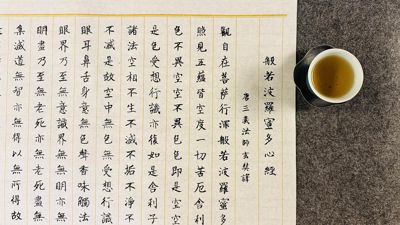 般若波羅蜜多心經
唐三藏法師玄奘譯
觀自在菩薩行深般若波羅蜜多
照見五蘊皆空度一切苦厄舍利
色不異空空不異色色即是空空
是色受想行識亦復如是舍利子
諸法空相不生不滅不垢不淨不
不減是故空中無色無受想行識
眼耳鼻舌身意無色聲香味觸法
眼界乃至無意識界無無明亦無
明盡乃至無老死亦無老死盡無
集滅道無智亦無得以無所得故